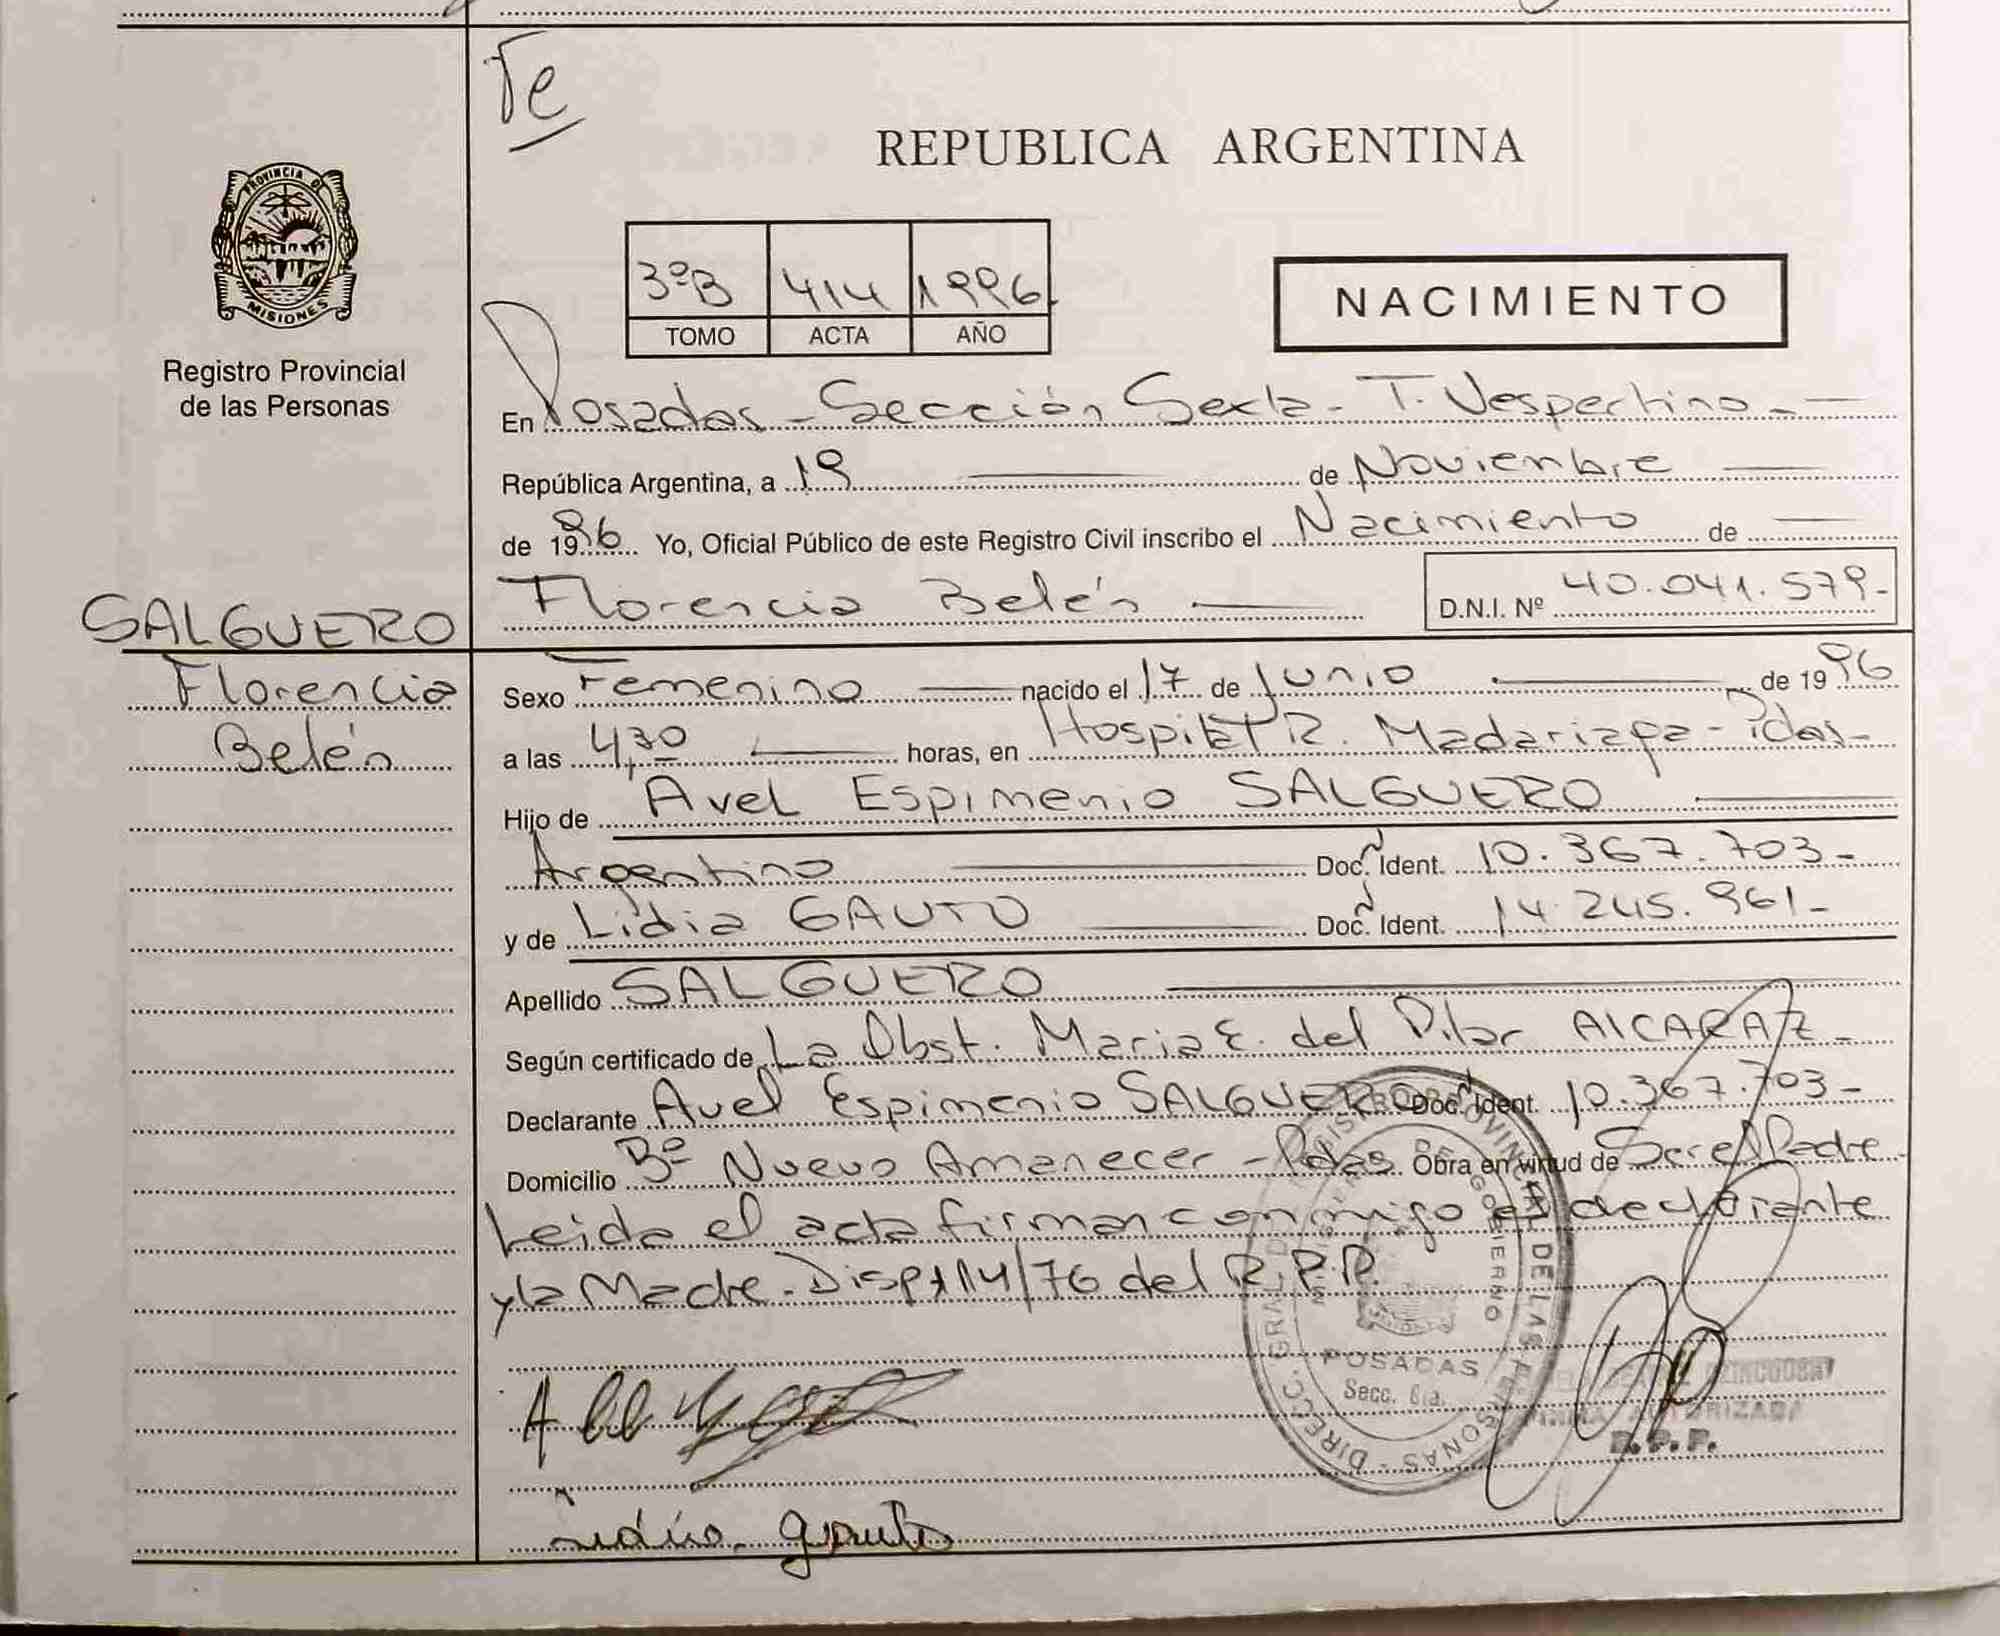 Te
REPUBLICA ARGENTINA
PROVINCIA DE MISIONES
Registro Provincial
de las Personas
3ºB 414 1996
TOMO ACTA AÑO
NACIMIENTO
En Posadas - Sección Sexta - T. Vespertino -
República Argentina, a 19 de Noviembre
de 1996 Yo, Oficial Público de este Registro Civil inscribo el Nacimiento de
Florencia Belén D.N.I. Nº 40.041.579-
SALGUERO
Florencia
Belén
Sexo Femenino nacido el 17 de Junio de 1996
a las 4,30 horas, en Hospital R. Madariaga - Pdas-
Hijo de Avel Espimenio SALGUERO
Argentino Doc. Ident. 10.367.703-
y de Lidia GAUTO Doc. Ident. 14.245.961-
Apellido SALGUERO
Según certificado de La Obst. Maria E. del Pilar AlCARAZ-
Declarante Avel Espimenio SALGUERO Doc. Ident. 10.367.703-
Domicilio Bº Nuevo Amanecer - Pdas Obra en virtud de Ser el Padre
Leida el acta firman conmigo el declarante
y la Madre - Disp 114/76 del R.P.P.
DIRECC. GRAL. DEL REGISTRO PROVINCIAL DE LAS PERSONAS
GOBIERNO
POSADAS
Secc. 6ta.
FIRMA AUTORIZADA
R.P.P.
Lidia gauto